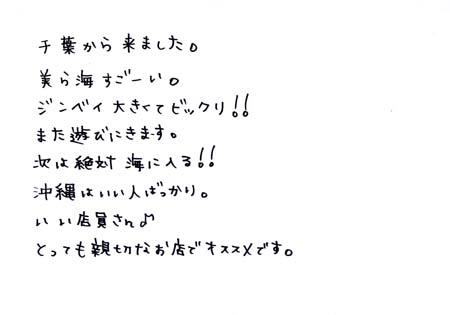 千葉から来ました。
美ら海すごーい。
ジンベイ大きくてビックリ!!
また遊びにきます。
次は絶対海に入る!!
沖縄はいい人ばっかり。
いい店員さん♪
とっても親切なお店でオススメです。